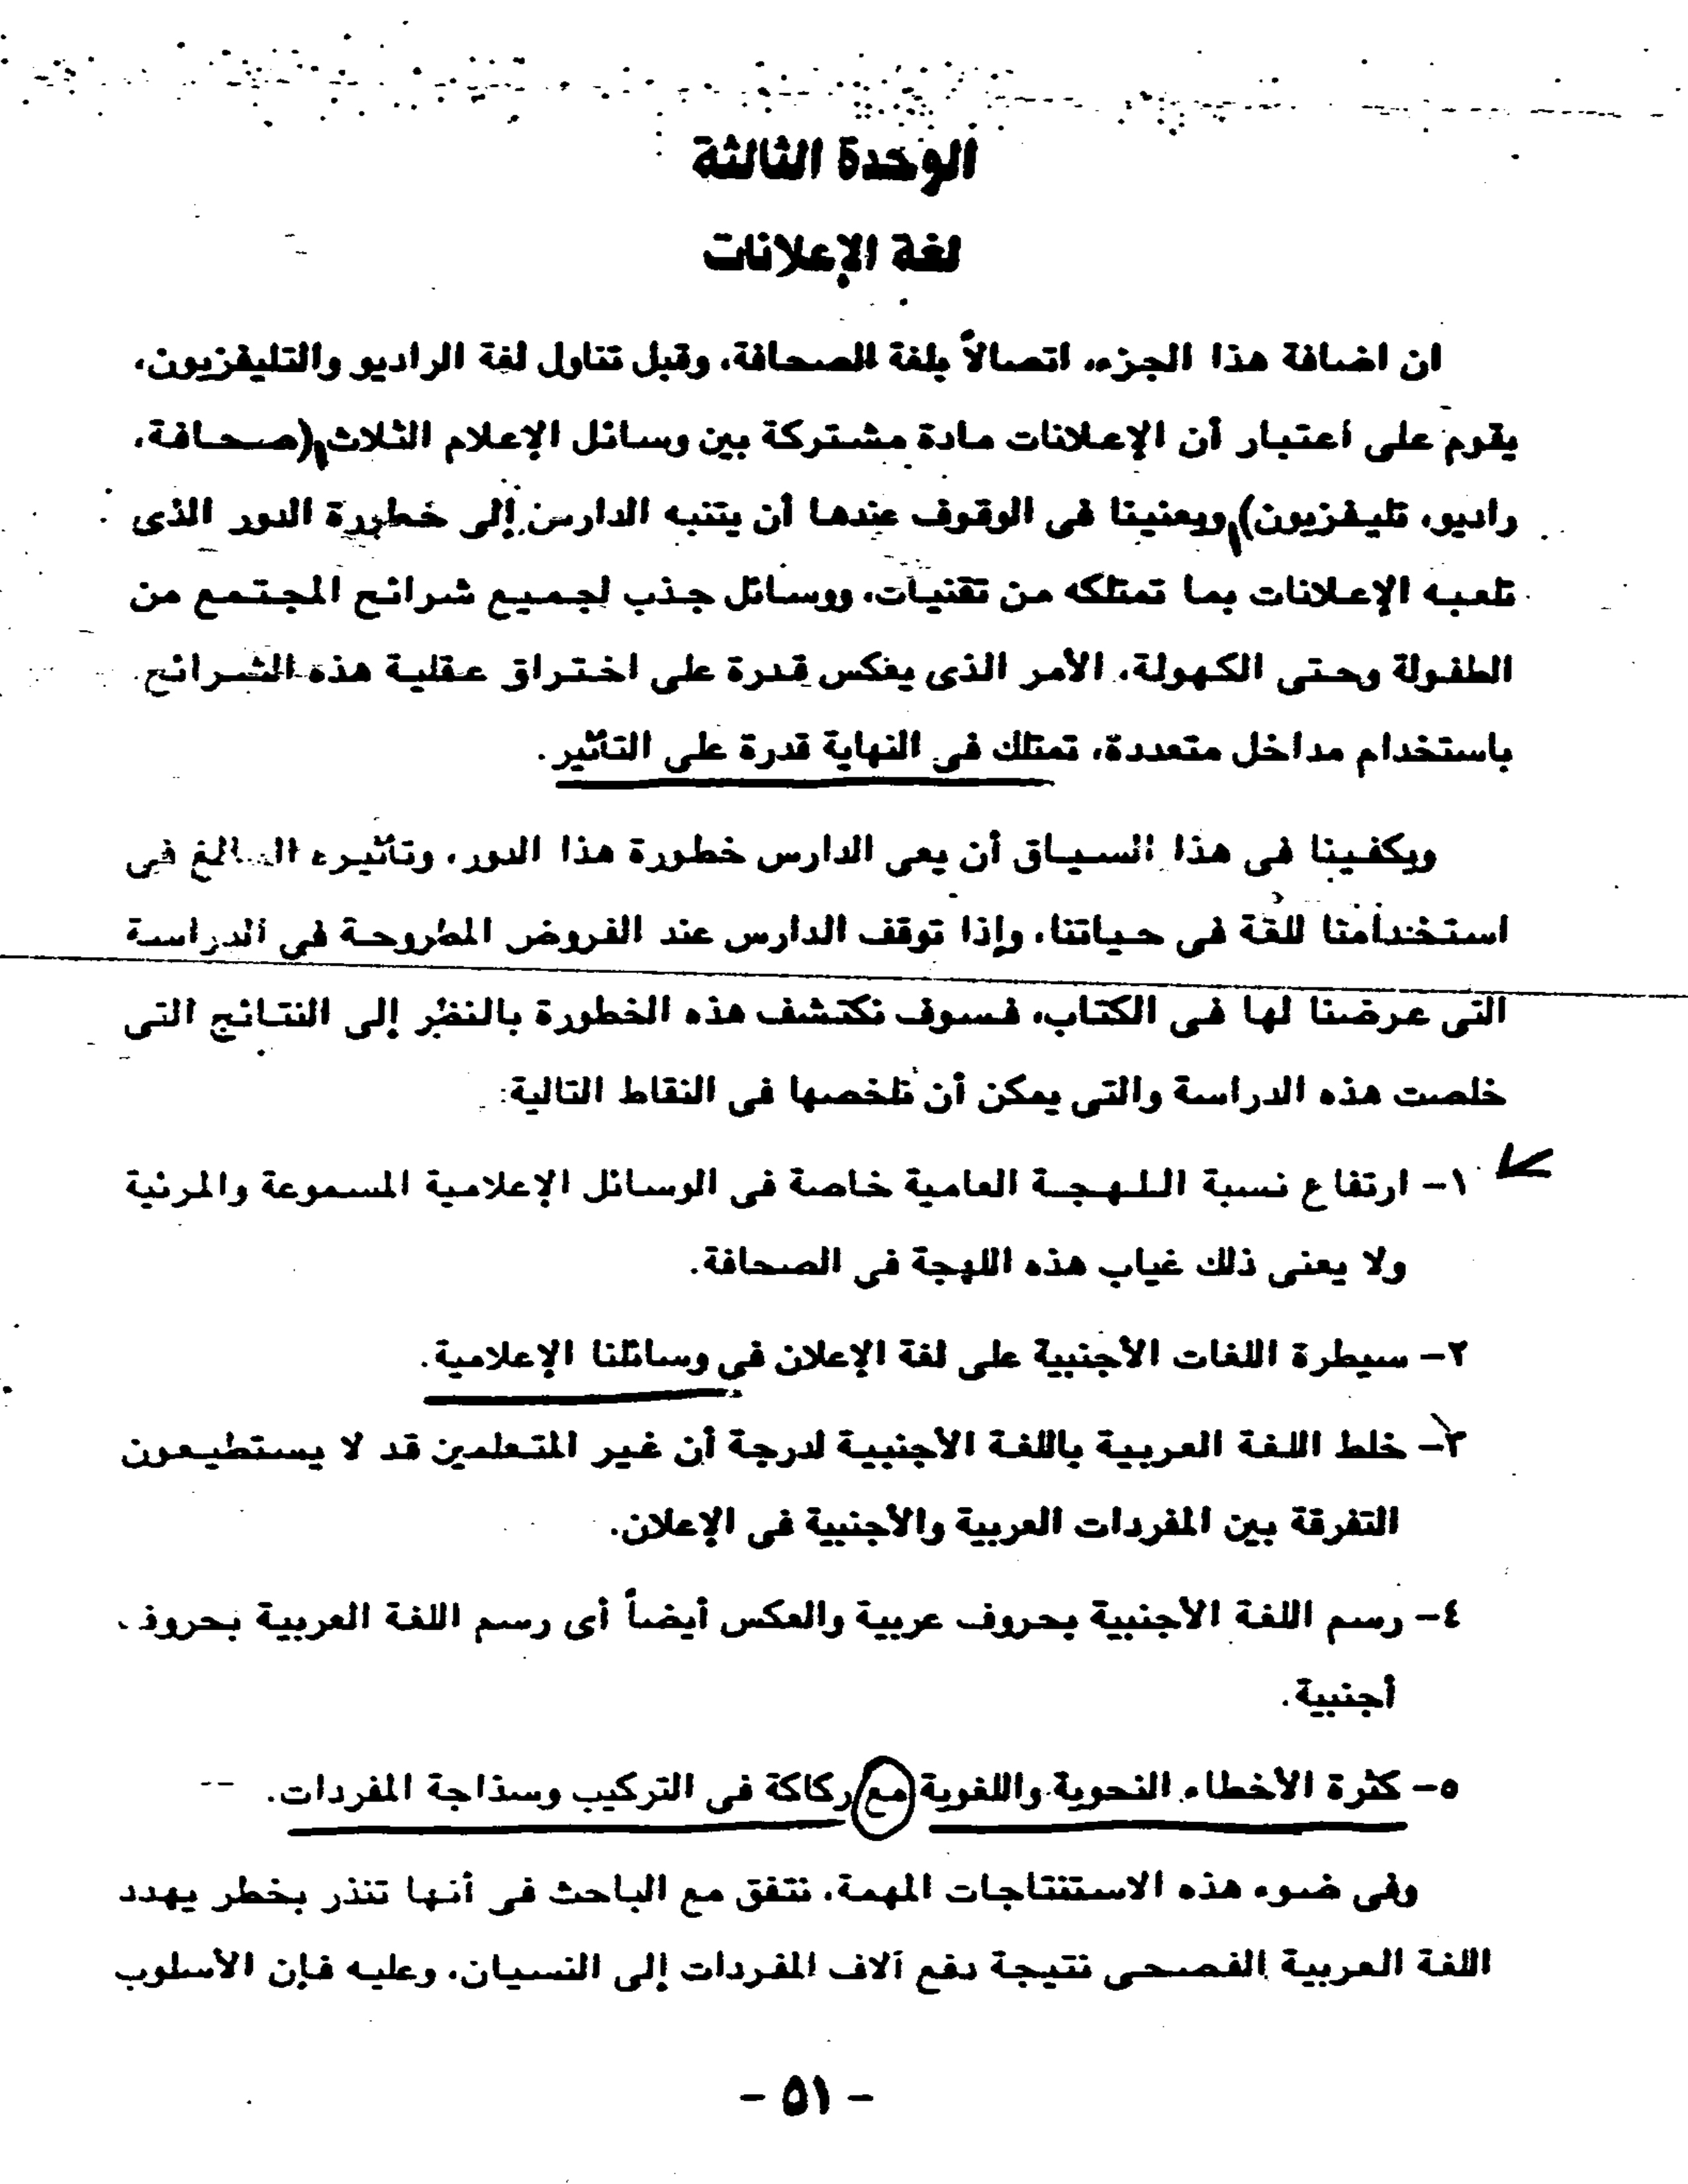 الوحدة الثالثة
لغة الإعلانات
ان اضافة هذا الجزء، اتصالاً بلغة الصحافة، وقبل تناول لغة الراديو والتليفزيون،
يقوم على اعتبار أن الإعلانات مادة مشتركة بين وسائل الإعلام الثلاث (صحافة،
راديو، تليفزيون) ويعنينا فى الوقوف عندها أن يتنبه الدارس إلى خطورة الدور الذى
تلعبه الإعلانات بما تمتلكه من تقنيات، ووسائل جذب لجميع شرائح المجتمع من
الطفولة وحتى الكهولة، الأمر الذى يعكس قدرة على اختراق عقلية هذه الشرائح
باستخدام مداخل متعددة، تمتلك فى النهاية قدرة على التأثير.
ويكفينا فى هذا السياق أن يعى الدارس خطورة هذا الدور، وتأثيره البالغ فى
استخدامنا للغة فى حياتنا، وإذا توقف الدارس عند الفروض المطروحة فى الدراسة
التى عرضنا لها فى الكتاب، فسوف نكتشف هذه الخطورة بالنظر إلى النتائج التى
خلصت هذه الدراسة والتى يمكن أن نلخصها فى النقاط التالية:
١- ارتفاع نسبة اللهجة العامية خاصة فى الوسائل الإعلامية المسموعة والمرئية
ولا يعنى ذلك غياب هذه اللهجة فى الصحافة.
٢- سيطرة اللغات الأجنبية على لغة الإعلان في وسائلنا الإعلامية.
٣- خلط اللغة العربية باللغة الأجنبية لدرجة أن غير المتعلمين قد لا يستطيعون
التفرقة بين المفردات العربية والأجنبية فى الإعلان.
٤- رسم اللغة الأجنبية بحروف عربية والعكس أيضاً أى رسم اللغة العربية بحروف
أجنبية.
٥- كثرة الأخطاء النحوية واللغوية مع ركاكة فى التركيب وسذاجة المفردات.
وفى ضوء هذه الاستنتاجات المهمة، نتفق مع الباحث فى أنها تنذر بخطر يهدد
اللغة العربية الفصحى نتيجة دفع آلاف المفردات إلى النسيان، وعليه فإن الأسلوب
- ٥١ -